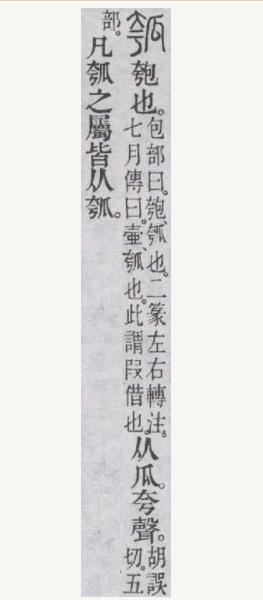 瓠匏也。包部曰。匏、瓠也。二篆左右轉注。七月傳曰。壷、瓠也。此謂叚借也。从瓜。夸聲。胡誤切。五
部。凡瓠之屬皆从瓠。